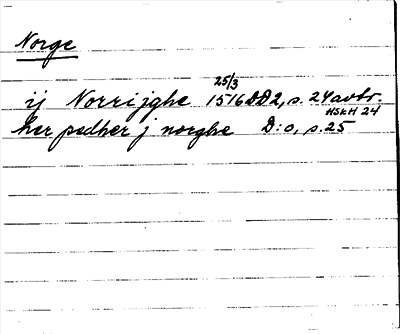 Norge
25/3
ij Norrijghe 1516 DD2, s. 24 avbr.
HSkH 24
her pedher j norghe D:o, s. 25